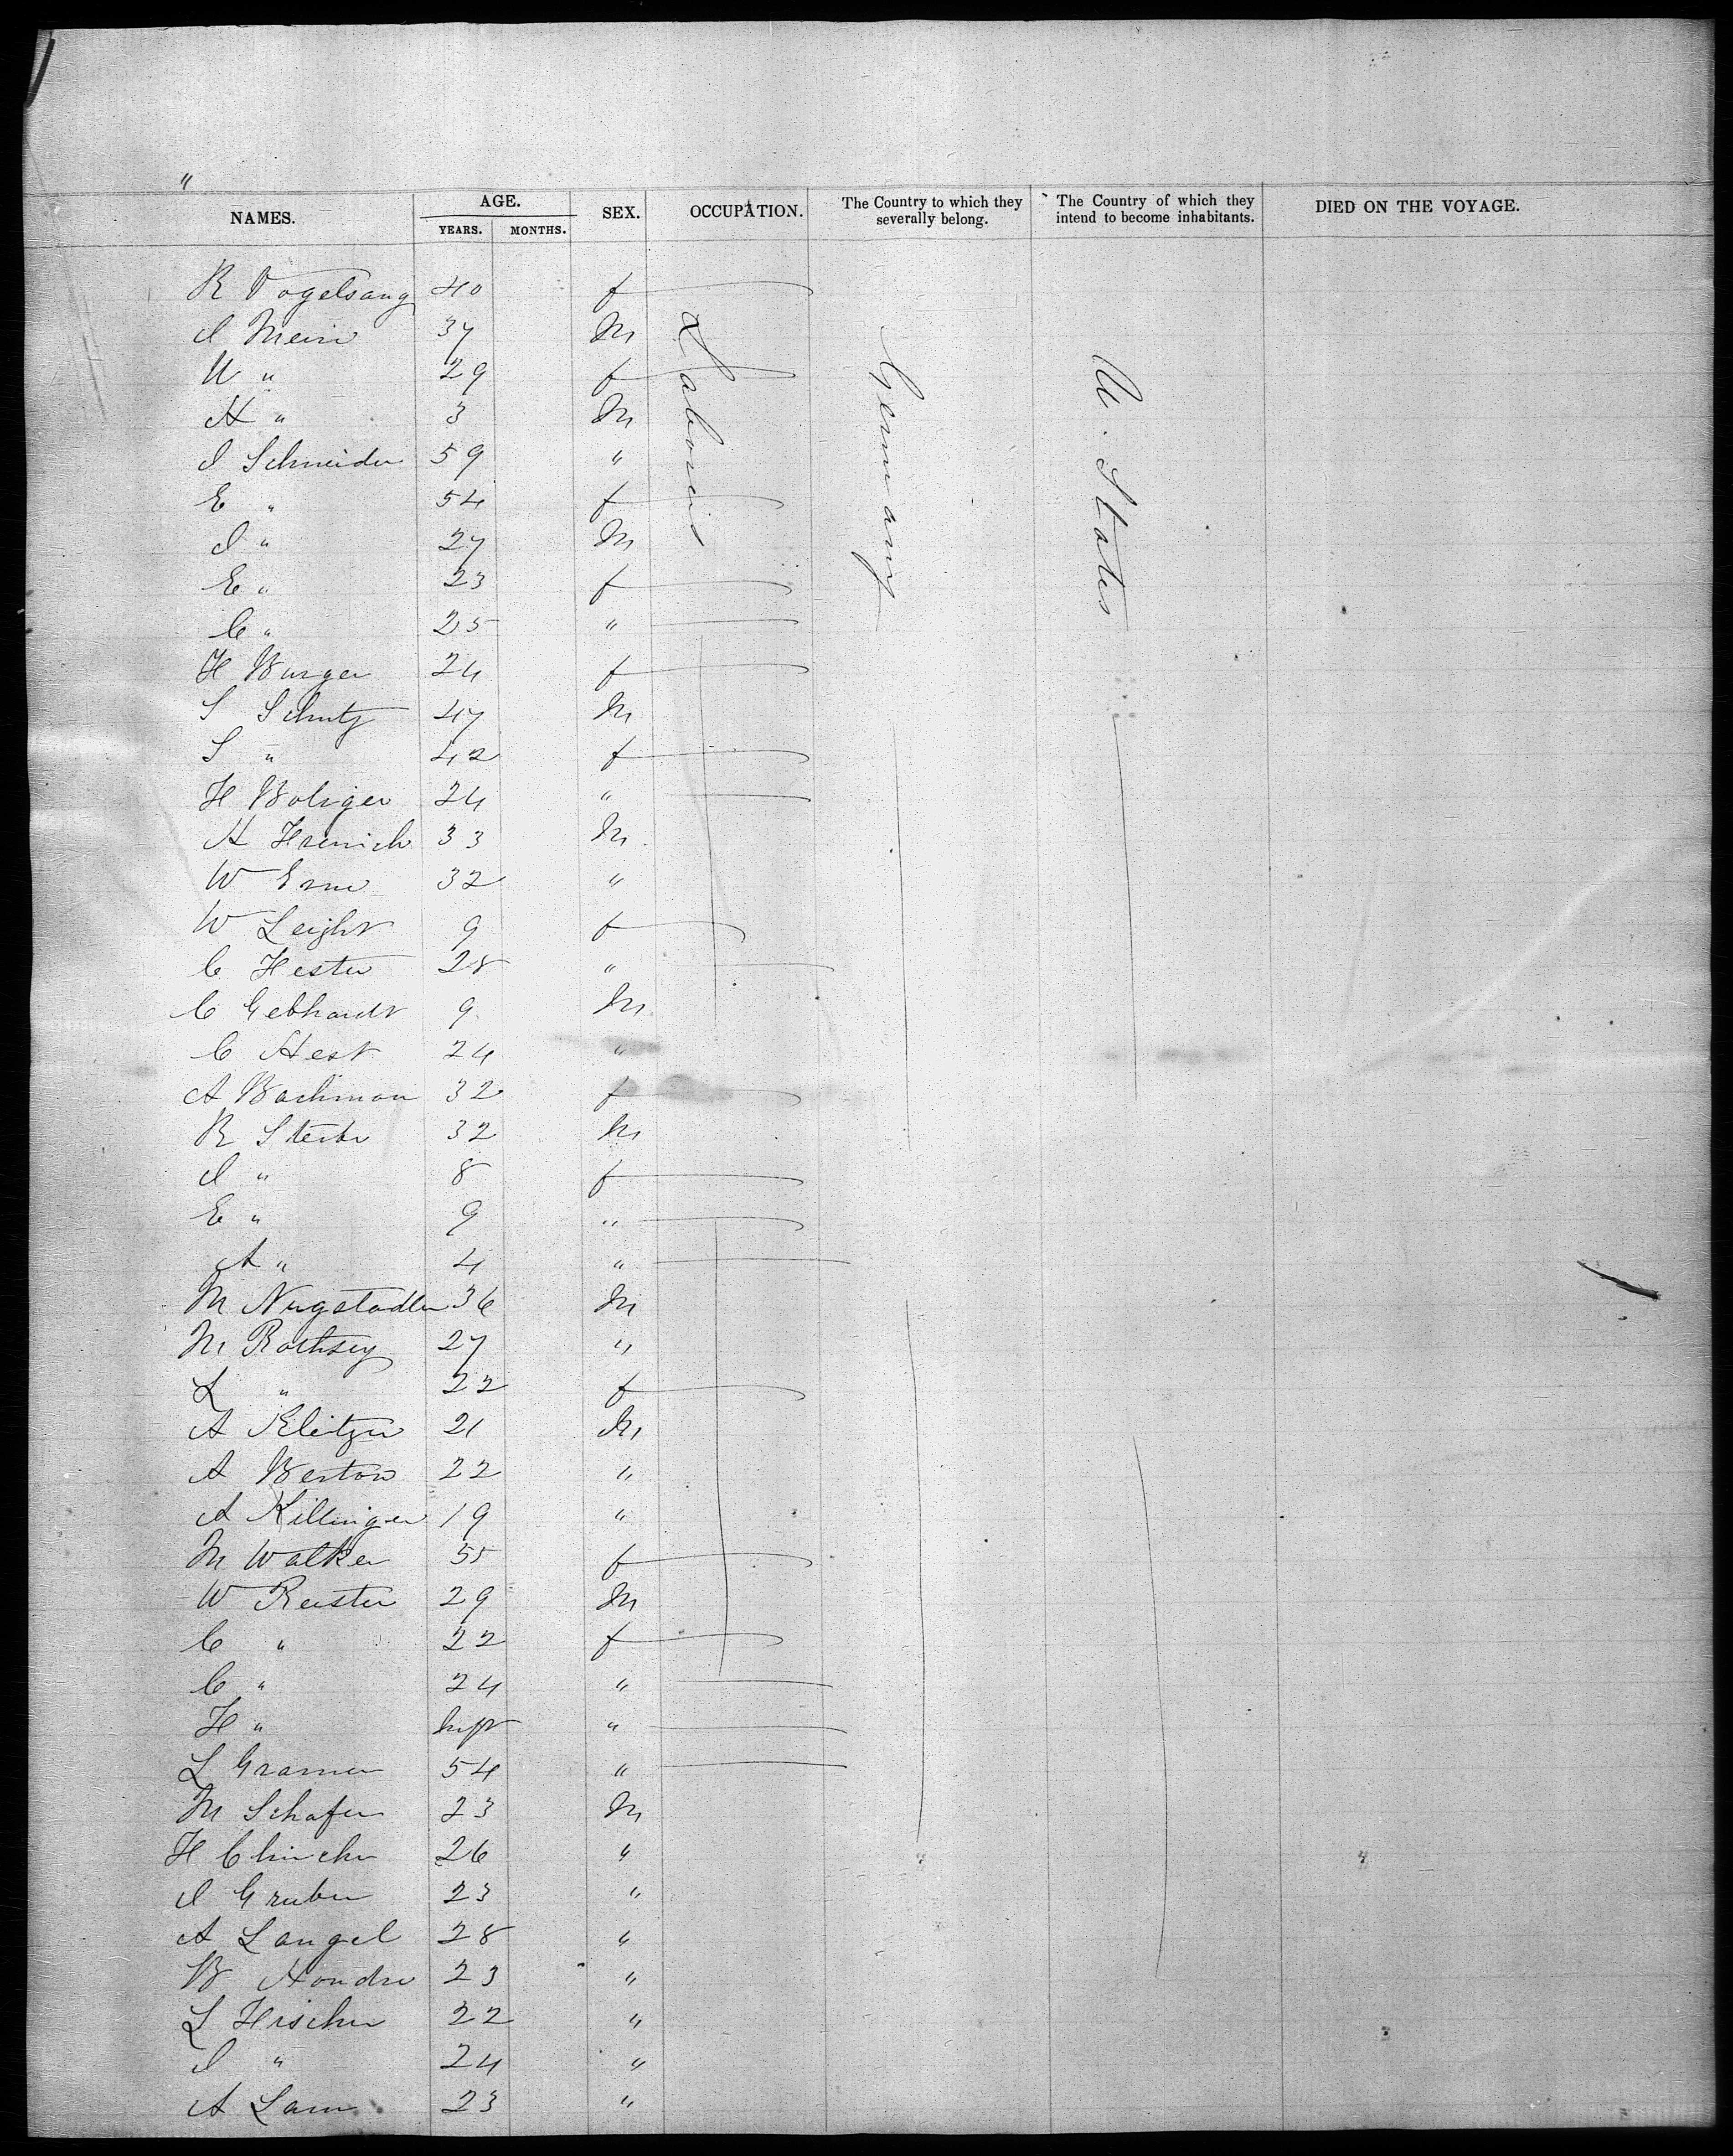 "
NAMES. AGE. YEARS. MONTHS. SEX. OCCUPATION. The Country to which they severally belong. The Country of which they intend to become inhabitants. DIED ON THE VOYAGE.
Laborers
Germany
U. States
R Vogelsang 40 f
I 37 M
" 29 f
H " 3 M
I Schneider 59 "
E " 54 f
I " 27 M
E " 23 f
C " 25 "
H Burger 24 f
S Schutz 47 M
S " 42 f
H 24 "
H 33 M
W 32 "
W Leight 9 f
C Hester 28 "
C Gebhardt 9 M
C Hest 24 "
A Bachman 32 f
R 32 M
I " 8 f
E " 9 "
A " 4 "
M 36 M
M Rothsey 27 "
L " 22 f
A Kleitzer 21 M
A Berton 22 "
A Killinger 19 "
M Walker 55 f
W Reister 29 M
C " 22 f
C " 24 "
H " "
L Gramer 54 "
M Schafer 23 M
H 26 "
I Gruber 23 "
A Langel 28 "
B 23 "
L 22 "
I " 24 "
A Lam 23 "